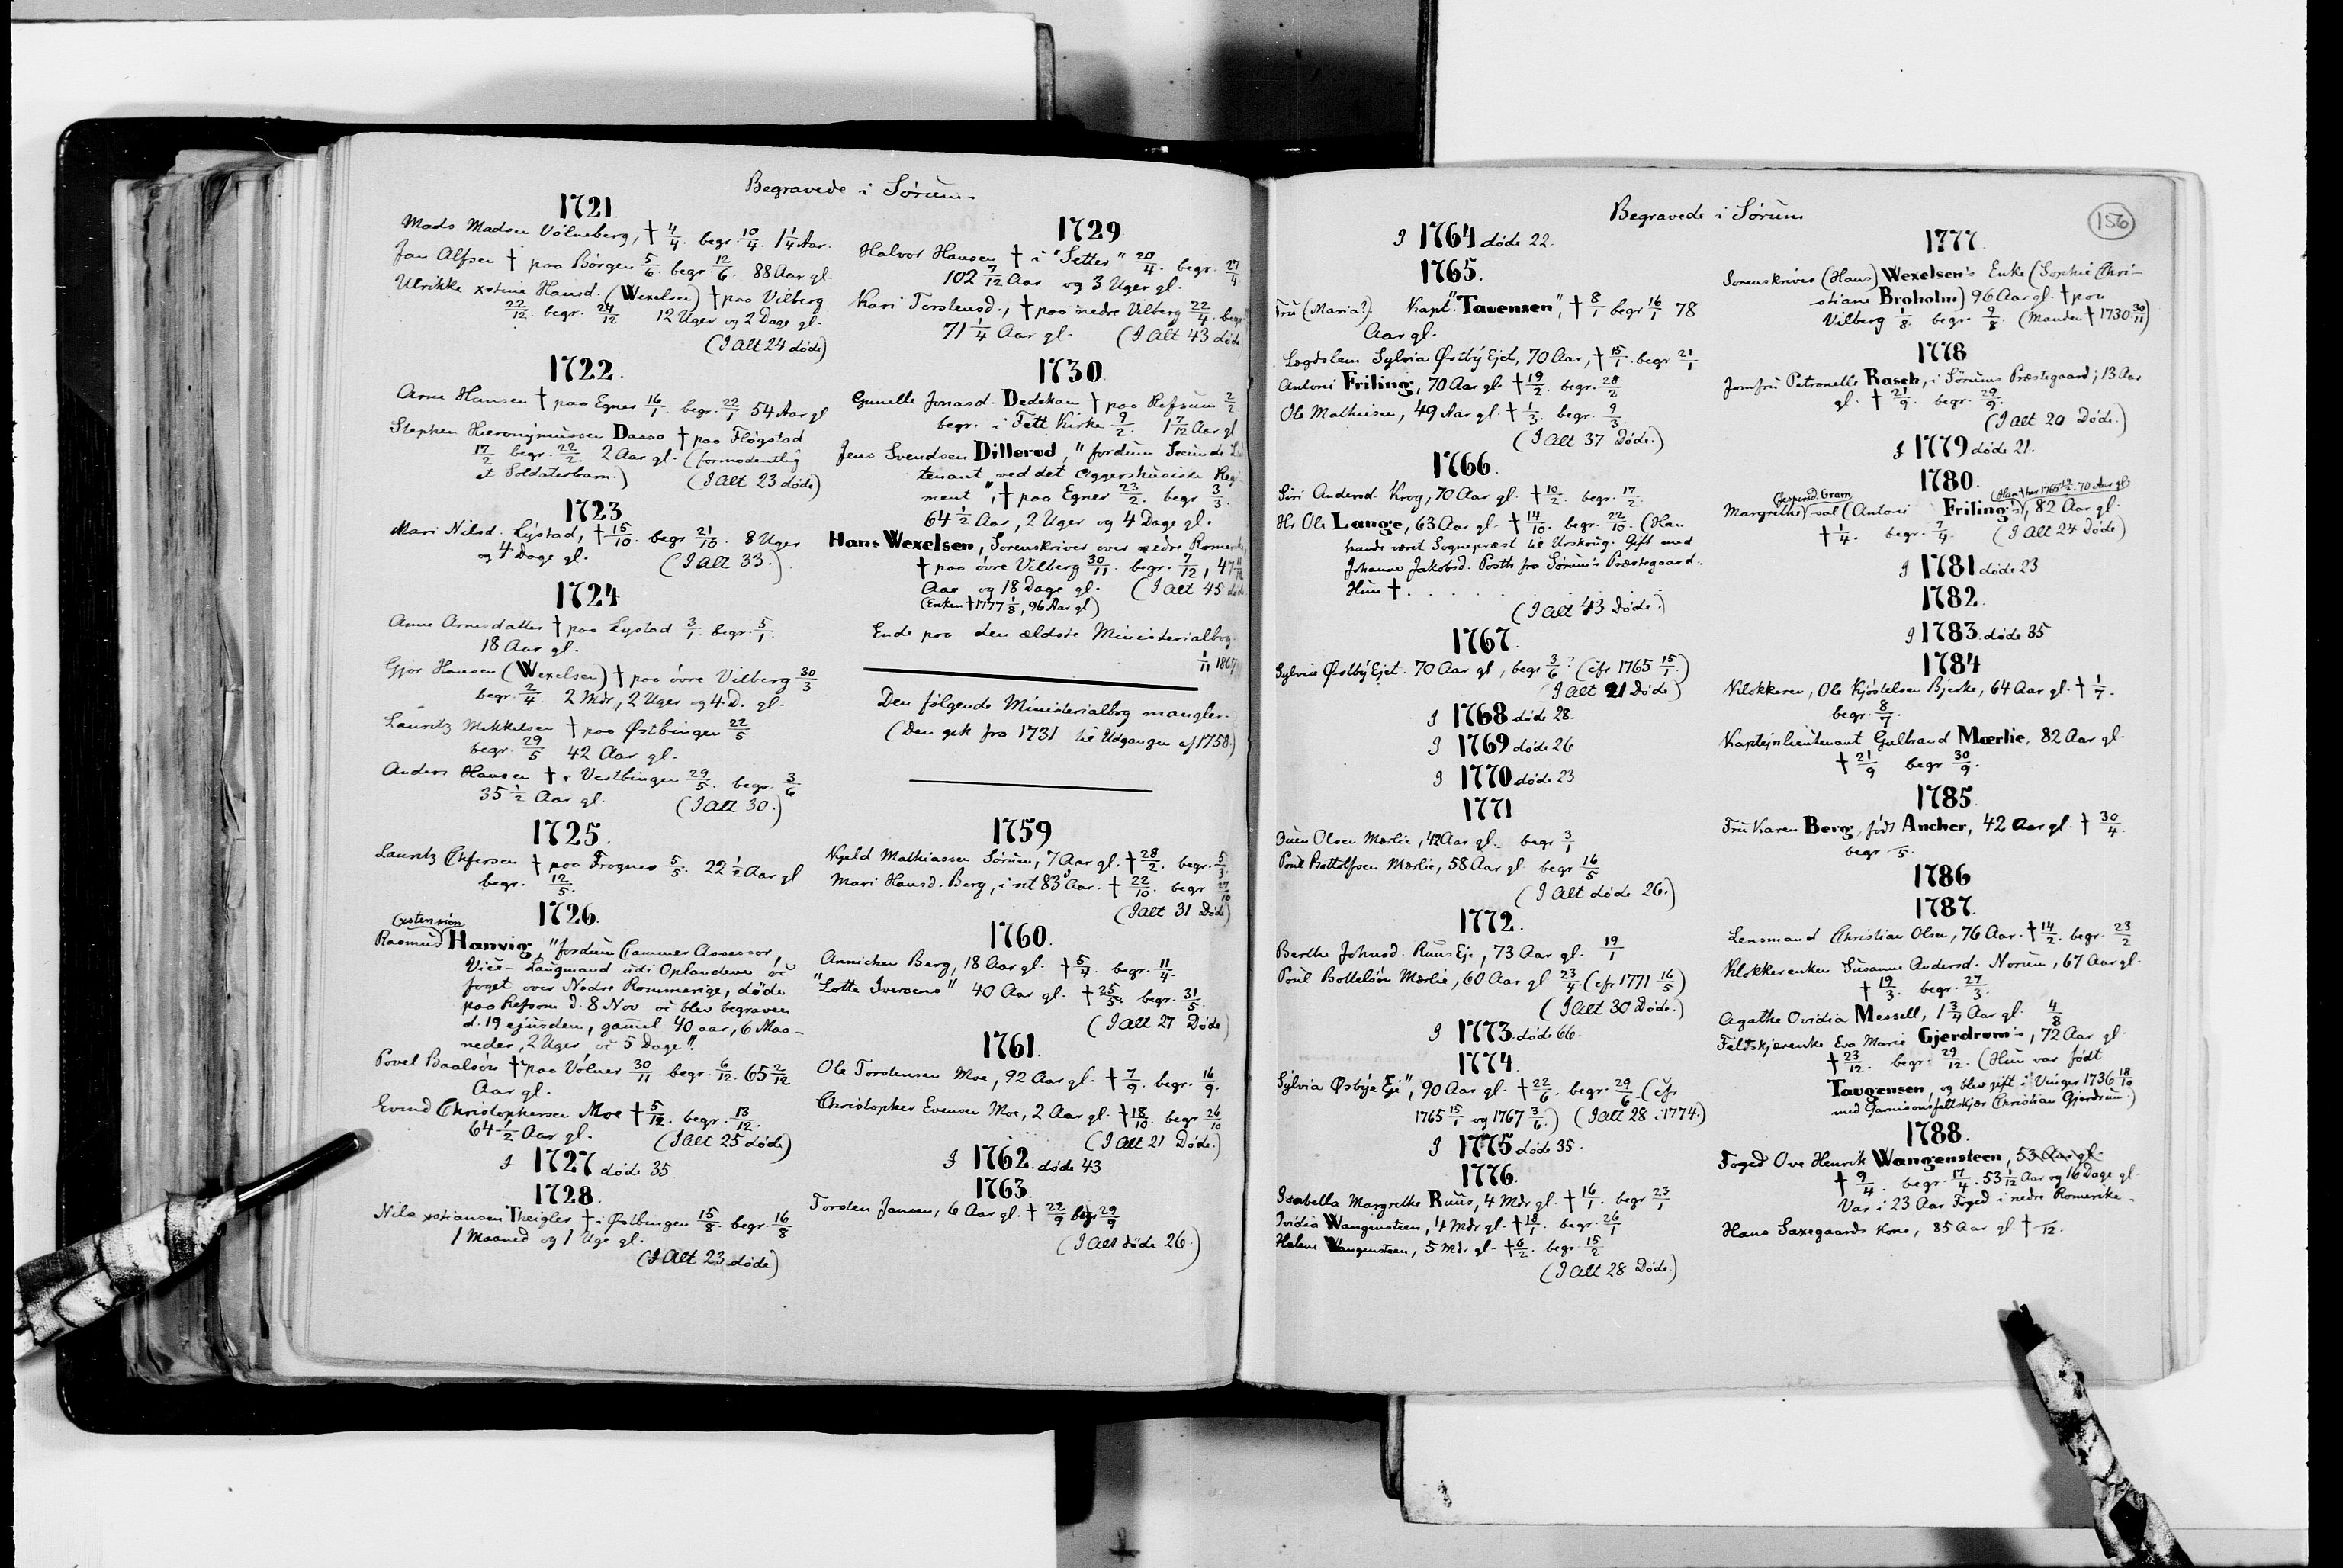 Begravede i Sörum.
1721
Mads Madsen Völneberg, † 4/4. begr. 10/4. 1 1/4 Aar.
Jan Alfsen † paa Börgen 5/6. begr. 12/6. 88 Aar gl.
Ulrikke xstine Hansd. (Wexelsen) † paa Vilberg
22/12. begr. 29/12 12 Uger og 2 Dage gl.
(I Alt 24 døde)
1722.
Arne Hansen † paa Egner 16/1. begr. 22/1 54 Aar gl
Stephen Hieronÿmussen Dasso † paa Flögstad
17/2 begr. 22/2. 2 Aar gl. (formodentlig
et Soldaterbarn.) (I Alt 23 døde)
1723
Mari Nilsd. Lÿstad, † 15/10. begr 21/10. 8 Uger
og 4 Dage gl. (I Alt 33.)
1724
Anne Arnesdatter † paa Lystad 3/1. begr. 5/1.
18 Aar gl.
Gjor Hansen (Wexelsen) † paa övre Vilberg 30/3
begr. 2/4. 2 Mdr, 2 Uger og 4 D. gl.
Lauritz Mikkelsen † paa Østbingen 22/5
begr. 29/5 42 Aar gl.
Anders Hansen † i Vestbingen 29/5. begr. 3/6
35 1/2 Aar gl. (I Alt 30.)
1725.
Lauritz † paa Frogner 5/5. 22 1/2 Aar gl
begr. 12/5.
1726.
(xstensön
Rasmus Hanvig, "fordum Cammer Assessor,
Vice-Laugmand udi Oplandene oc
foget over Nedre Rommerige, døde
paa Refsom d. 8 Nov oc blev begraven
d. 19 ejusdem, gamel 40 aar, 6 Maa-
neder, 2 Uger oc 5 Dage".
Povel Baalsön † paa Völner 30/11. begr. 6/12. 65 2/12
Aar gl.
Evend Christophersen Moe † 5/12. begr. 13/12.
64 1/2 Aar gl. (I Alt 25 døde)
I 1727 døde 35
1728.
Nils xstiansen Theigler † i Østbingen 15/8. begr. 16/8
1 Maaned og 1 Uge gl.
(I Alt 23 døde)
1729
Halvor Hansen † i "Setter" 20/4. begr. 27/4
102 7/12 Aar og 3 Uger gl.
Kari Torstensd., † paa nedre Vilberg 22/4. begr
71 1/4 Aar gl. (I Alt 43 døde
1730
Gunelle Jonasd. Dedekam † paa Refsum 2/2
begr. i Fett Kirke 9/2. 1 7/12 Aar gl
Jens Svendsen Dillerud, "fordum Secunde
tenant ved det Aggershusiske Reg
ment", † paa Egner 23/2. begr 3/3.
64 1/2 Aar, 2 Uger og 4 Dage gl.
Hans Wexelsen, Sorenskriver over nedre Romer
† paa övre Vilberg 30/11. begr. 7/12, 47 11/12
Aar og 18 Dage gl. (I Alt 45 døde
(Enken † 1777 1/8, 96 Aar gl)
Ende paa den ældste Ministerialbog.
1/11 1867
Den følgende Ministerialbog mangler.
(Den gik fra 1731 til Udgangen af 1758.)
1759
Kjeld Mathiassen Sörum, 7 Aar gl. † 28/2. begr. 5/3.
Mari Hansd. Berg, i sit 83' Aar. † 22/10. begr 27/10
(I Alt 31 Døde)
1760.
Annichen Berg, 18 Aar gl. † 5/4. begr. 11/4.
"Lotte Iversens" 40 Aar gl. † 25/5. begr. 31/5.
(I Alt 27 Døde)
1761.
Ole Torstensen Moe, 92 Aar gl. † 7/9. begr. 16/9.
Christopher Evensen Moe, 2 Aar gl † 18/10. begr 26/10
(I Alt 21 Døde.)
I 1762. døde 43
1763.
Torsten Jansen, 6 Aar gl. † 22/9 begr 29/9
(I Alt døde 26.)
Begravede i Sörum
156
I 1764 døde 22.
1765.
Fru (Maria?) Kapt. "Tavensen", † 8/1 begr 16/1 78
Aar gl.
Logdslem Sylvia Østbÿ Ejet, 70 Aar, † 15/1. begr 21/1
Antoni Friling, 70 Aar gl. † 19/2. begr. 28/2
Ole Mathisen, 49 Aar gl. † 1/3. begr. 9/3.
(I Alt 37 Døde.)
1766.
Siri Andersd. Krog, 70 Aar gl. † 10/2. begr. 17/2.
Hr Ole Lange, 63 Aar gl. † 14/10. begr. 22/10. (Han
havde været Sognepræst til Urskoug. Gift med
Johanne Jakobsd. Posth fra Sörum's Præstegaard.
Hun † . . . . .
(I Alt 43 Døde.)
1767.
Sylvia Østbÿ Ejet. 70 Aar gl, begr 3/6? (cfr 1765 15/1.)
(I Alt 21 Døde)
I 1768 døde 28.
I 1769 døde 26
I 1770 døde 23
1771
Olsen Mærlie, 42 Aar gl. begr 3/1
Poul Bottolfsen Mærlie, 58 Aar gl begr 16/5
(I Alt døde 26.)
1772.
Berthe Johnsd. Ruus Eje, 73 Aar gl. 19/1
Poul Bottelsön Mærlie, 60 Aar gl 23/4. (cfr 1771 16/5)
(I Alt 30 Døde.)
I 1773. døde 66.
1774.
Sylvia Øsbye Eje", 90 Aar gl. † 22/6. begr. 29/6. (cfr
1765 15/1 og 1767 3/6.) (I Alt 28 i 1774.)
I 1775 døde 35.
1776.
Isabella Margrethe Ruus, 4 Mdr gl. † 16/1. begr 23/1
Ovidia Wangensteen, 4 Mdr gl. † 18/1. begr. 26/1
Helene Wangensteen, 5 Mdr gl. † 6/2. begr. 15/2
(I Alt 28 Døde.)
1777.
Sorenskriver (Hans) Wexelsen's Enke (Sophie Chri-
stiane Broholm) 96 Aar gl. † paa
Vilberg 1/8. begr. 9/8. (Manden † 1730 30/11)
1778
Jomfru Petronelle Rasch, i Sörums Præstegaard, 13 Aar
gl. † 21/9. begr. 29/9.
(I Alt 20 Døde.)
I 1779 døde 21.
1780.
Jespersd. Gram (Han † her 1765 19/2. 70 Aar gl)
Margrethe sal (Antoni Friling's), 82 Aar gl.
† 1/4. begr. 7/4. (I Alt 24 Døde)
I 1781 døde 23
1782.
I 1783. døde 35
1784
Klokkeren, Ole Kjöstelsen Bjerke, 64 Aar gl. † 1/7.
begr. 8/7.
Kaptejnlieutenant Gulbrand Mærlie, 82 Aar gl.
† 21/9 begr 30/9.
1785.
Fru Karen Berg, født Ancher, 42 Aar gl. † 30/4.
begr /5.
1786
1787.
Lensmand Christian Olsen, 76 Aar. † 14/2. begr. 23/2
Klokkerenken Susanne Andersd. Norum, 67 Aar gl.
† 19/3. begr. 27/3.
Agathe Ovidia Messell, 1 3/4 Aar gl. 4/8
Feltskjærenke Eva Marie Gjerdrum's, 72 Aar gl.
† 23/12. begr. 29/12. (Hun var født
Taugensen, og blev gift i Vinger 1736 18/10
med Garnisonsfeltskjær Christian Gjerdrum.)
1788.
Foged Ove Henrik Wangensteen, 53 Aar gl.
† 9/4. begr. 17/4. 53 1/12 Aar og 16 Dage gl.
Var i 23 Aar Foged i nedre Romerike.
Hans Saxegaards Kone, 85 Aar gl. † /12.